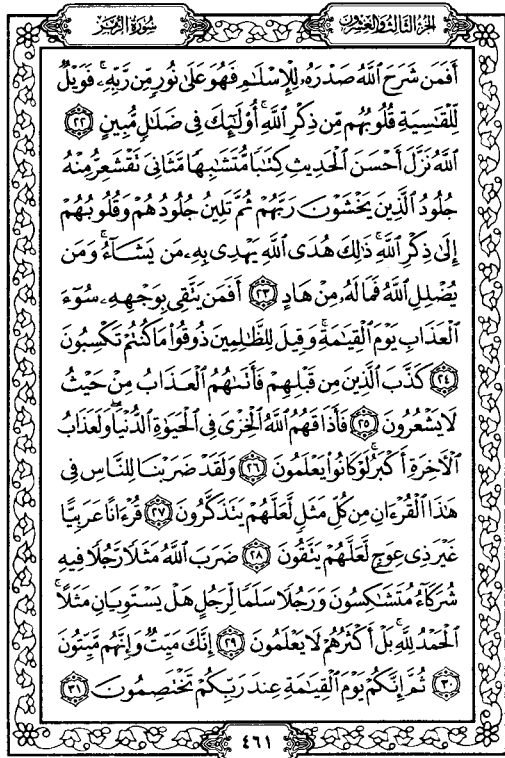 سورة الزمر
الجزء الثالث والعشرون
أَفَمَن شَرَحَ ٱللَّهُ صَدْرَهُۥ لِلْإِسْلَـٰمِ فَهُوَ عَلَىٰ نُورٍ مِّن رَّبِّهِۦ ۚ فَوَيْلٌ
لِّلْقَـٰسِيَةِ قُلُوبُهُم مِّن ذِكْرِ ٱللَّهِ ۚ أُو۟لَـٰٓئِكَ فِى ضَلَـٰلٍ مُّبِينٍ ٢٢
ٱللَّهُ نَزَّلَ أَحْسَنَ ٱلْحَدِيثِ كِتَـٰبًا مُّتَشَـٰبِهًا مَّثَانِىَ تَقْشَعِرُّ مِنْهُ
جُلُودُ ٱلَّذِينَ يَخْشَوْنَ رَبَّهُمْ ثُمَّ تَلِينُ جُلُودُهُمْ وَقُلُوبُهُمْ
إِلَىٰ ذِكْرِ ٱللَّهِ ۚ ذَٰلِكَ هُدَى ٱللَّهِ يَهْدِى بِهِۦ مَن يَشَآءُ ۚ وَمَن
يُضْلِلِ ٱللَّهُ فَمَا لَهُۥ مِنْ هَادٍ ٢٣ أَفَمَن يَتَّقِى بِوَجْهِهِۦ سُوٓءَ
ٱلْعَذَابِ يَوْمَ ٱلْقِيَـٰمَةِ ۚ وَقِيلَ لِلظَّـٰلِمِينَ ذُوقُوا۟ مَا كُنتُمْ تَكْسِبُونَ
٢٤ كَذَّبَ ٱلَّذِينَ مِن قَبْلِهِمْ فَأَتَىٰهُمُ ٱلْعَذَابُ مِنْ حَيْثُ
لَا يَشْعُرُونَ ٢٥ فَأَذَاقَهُمُ ٱللَّهُ ٱلْخِزْىَ فِى ٱلْحَيَوٰةِ ٱلدُّنْيَا ۖ وَلَعَذَابُ
ٱلْـَٔاخِرَةِ أَكْبَرُ ۚ لَوْ كَانُوا۟ يَعْلَمُونَ ٢٦ وَلَقَدْ ضَرَبْنَا لِلنَّاسِ فِى
هَـٰذَا ٱلْقُرْءَانِ مِن كُلِّ مَثَلٍ لَّعَلَّهُمْ يَتَذَكَّرُونَ ٢٧ قُرْءَانًا عَرَبِيًّا
غَيْرَ ذِى عِوَجٍ لَّعَلَّهُمْ يَتَّقُونَ ٢٨ ضَرَبَ ٱللَّهُ مَثَلًا رَّجُلًا فِيهِ
شُرَكَآءُ مُتَشَـٰكِسُونَ وَرَجُلًا سَلَمًا لِّرَجُلٍ هَلْ يَسْتَوِيَانِ مَثَلًا ۚ
ٱلْحَمْدُ لِلَّهِ ۚ بَلْ أَكْثَرُهُمْ لَا يَعْلَمُونَ ٢٩ إِنَّكَ مَيِّتٌ وَإِنَّهُم مَّيِّتُونَ
٣٠ ثُمَّ إِنَّكُمْ يَوْمَ ٱلْقِيَـٰمَةِ عِندَ رَبِّكُمْ تَخْتَصِمُونَ ٣١
٤٦١